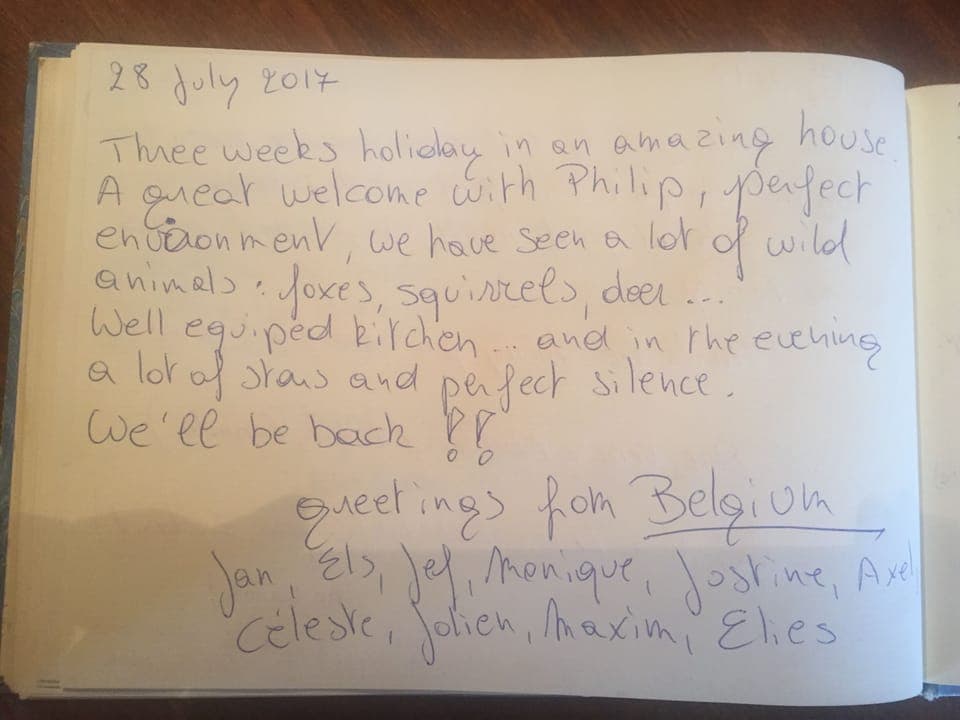 28 July 2017
Three weeks holiday in an amazing house.
A great welcome with Philip, perfect
environment, we have seen a lot of wild
animals: foxes, squirrels, deer ...
Well equiped kitchen ... and in the evening
a lot of stars and perfect silence.
We'll be back !!
greetings from Belgium
Jan, Els, Jef, Monique, Justine, Axel
Céleste, Jolien, Maxim, Elies